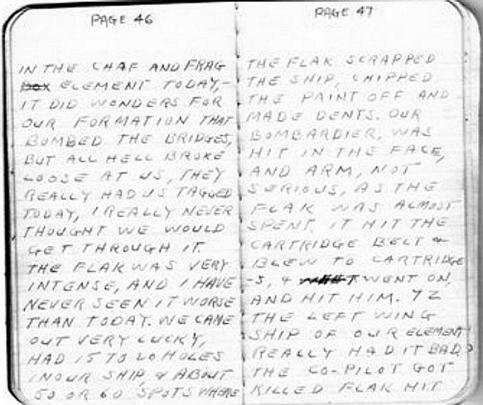 PAGE 46
IN THE CHAF AND FRAG
BOX ELEMENT TODAY,-
IT DID WONDERS FOR
OUR FORMATION THAT
BOMBED THE BRIDGES,
BUT ALL HELL BROKE
LOOSE AT US, THEY
REALLY HAD US TAGGED
TODAY, I REALLY NEVER
THOUGHT WE WOULD
GET THROUGH IT.
THE FLAK WAS VERY
INTENSE, AND I HAVE
NEVER SEEN IT WORSE
THAN TODAY. WE CAME
OUT VERY LUCKY,
HAD 15 TO 20 HOLES
IN OUR SHIP, & ABOUT
50 OR 60 SPOTS WHERE
PAGE 47
THE FLAK SCRAPPED
THE SHIP, CHIPPED
THE PAINT OFF AND
MADE DENTS. OUR
BOMBARDIER, WAS
HIT IN THE FACE,
AND ARM, NOT
SERIOUS, AS THE
FLAK WAS ALMOST
SPENT. IT HIT THE
CARTRIDGE BELT &
BLEW TO CARTRIDGE
-S, & WENT ON,
AND HIT HIM.
THE LEFT WING
SHIP OF OUR ELEMENT
REALLY HAD IT BAD,
THE CO-PILOT GOT
KILLED FLAK HIT